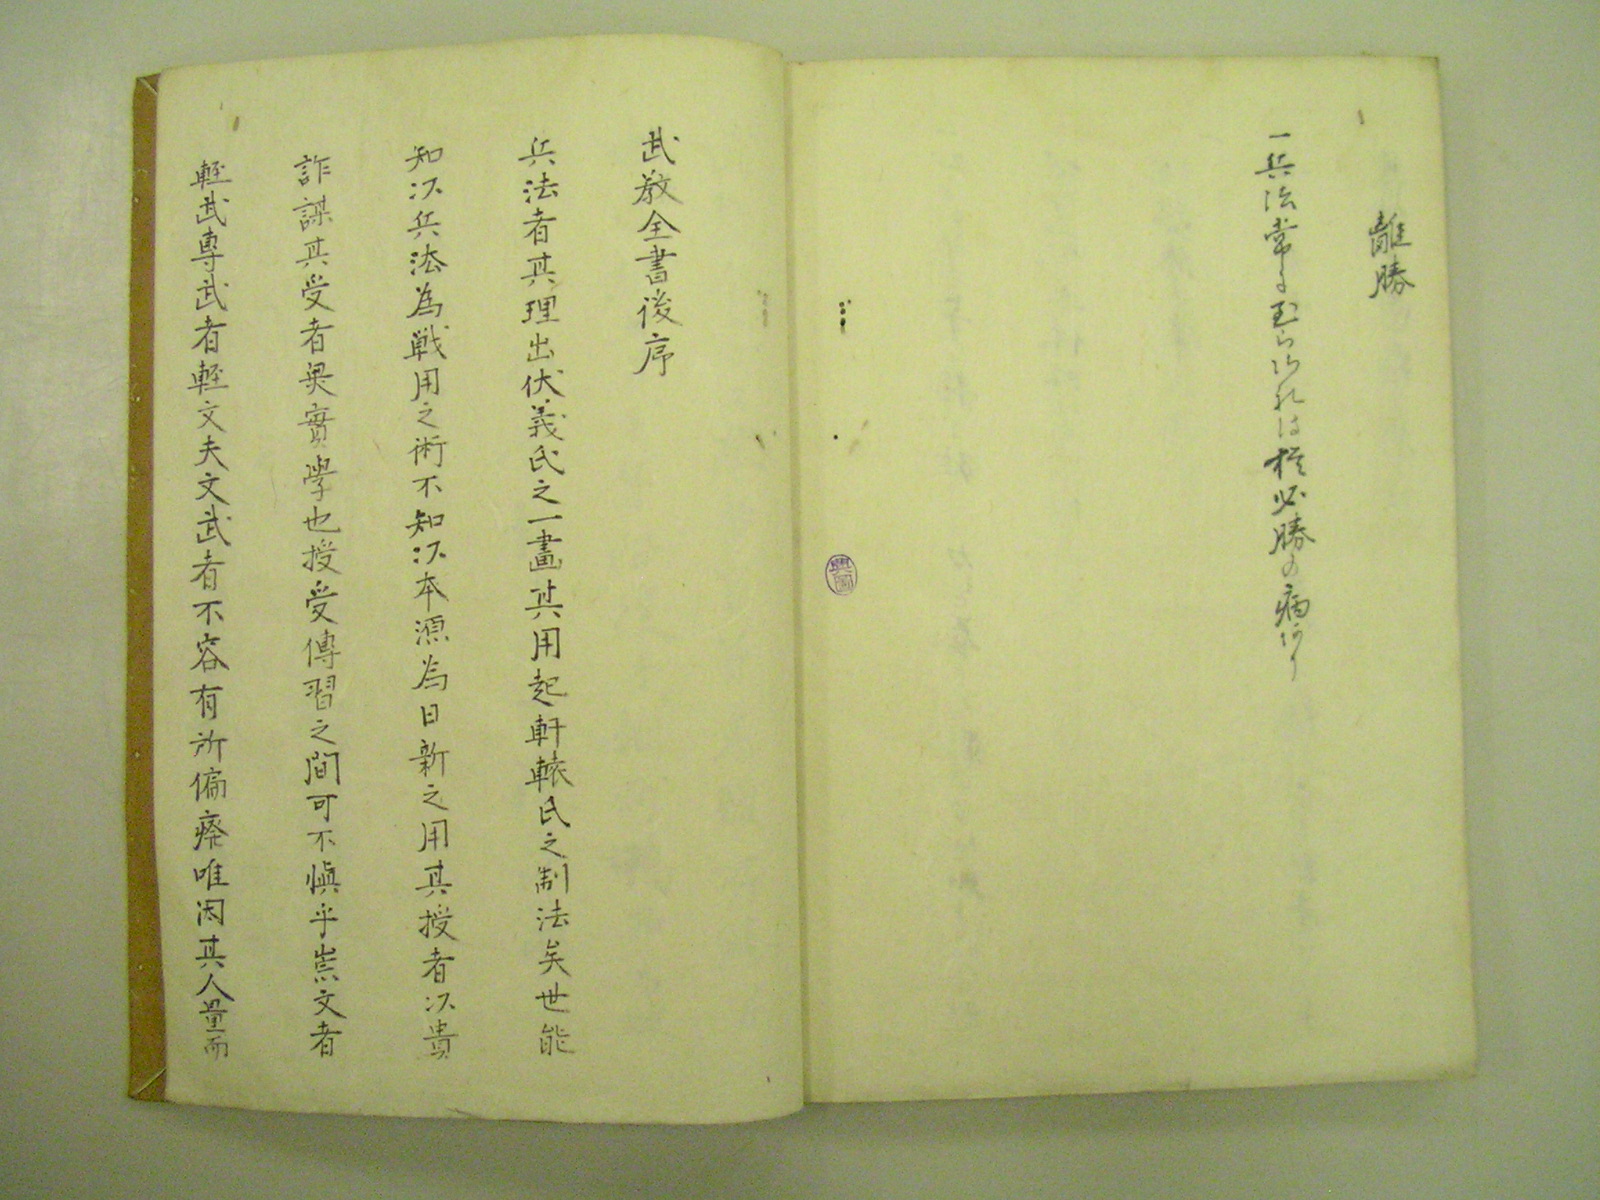 離勝
一兵法常に至らされは格必勝の病あり
武教全書後序
兵法者其理出伏義氏之一畫其用起軒轅氏之制法矣世能
知以兵法為戦用之術不知以本源為日新之用其授者以貴
詐謀其受者奥實學也授受傳習之間可不愼乎崇文者
輕武専武者輕文夫文武者不容有所偏癈唯因其人量而